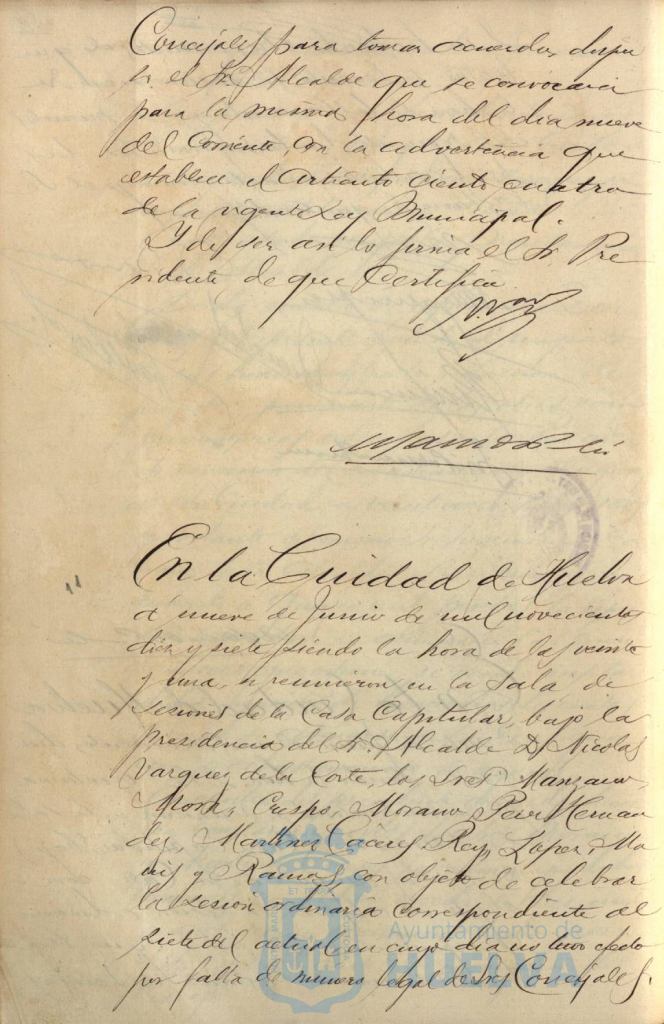 Concejales para tomar acuerdos, dispu
so el Sr. Alcalde que se convocara
para la misma hora del dia nueve
del corriente, con la advertencia que
establece el Articulo ciento cuatro
de la vigente Ley Municipal.
Y de ser asi lo firma el Sr. Pre
sidente de que Certifico.
En la Ciudad de Huelva
á nueve de Junio de mil novecientos
diez y siete, siendo la hora de las veinte
y una, se reunieron en la sala de
sesiones de la Casa Capitular, bajo la
presidencia del Sr. Alcalde D. Nicolas
Vazquez de la Corte, los Sres. Manzano,
Mora, Crespo, Moreno, Perez Hernan
dez, Martinez Cáceres, Rey, Lopez,
y Ramos con objeto de celebrar
la sesion ordinaria correspondiente al
siete del actual en cuyo dia no tuvo efecto
por falta de numero legal de Sres. Concejales.
Ayuntamiento de
HUELVA